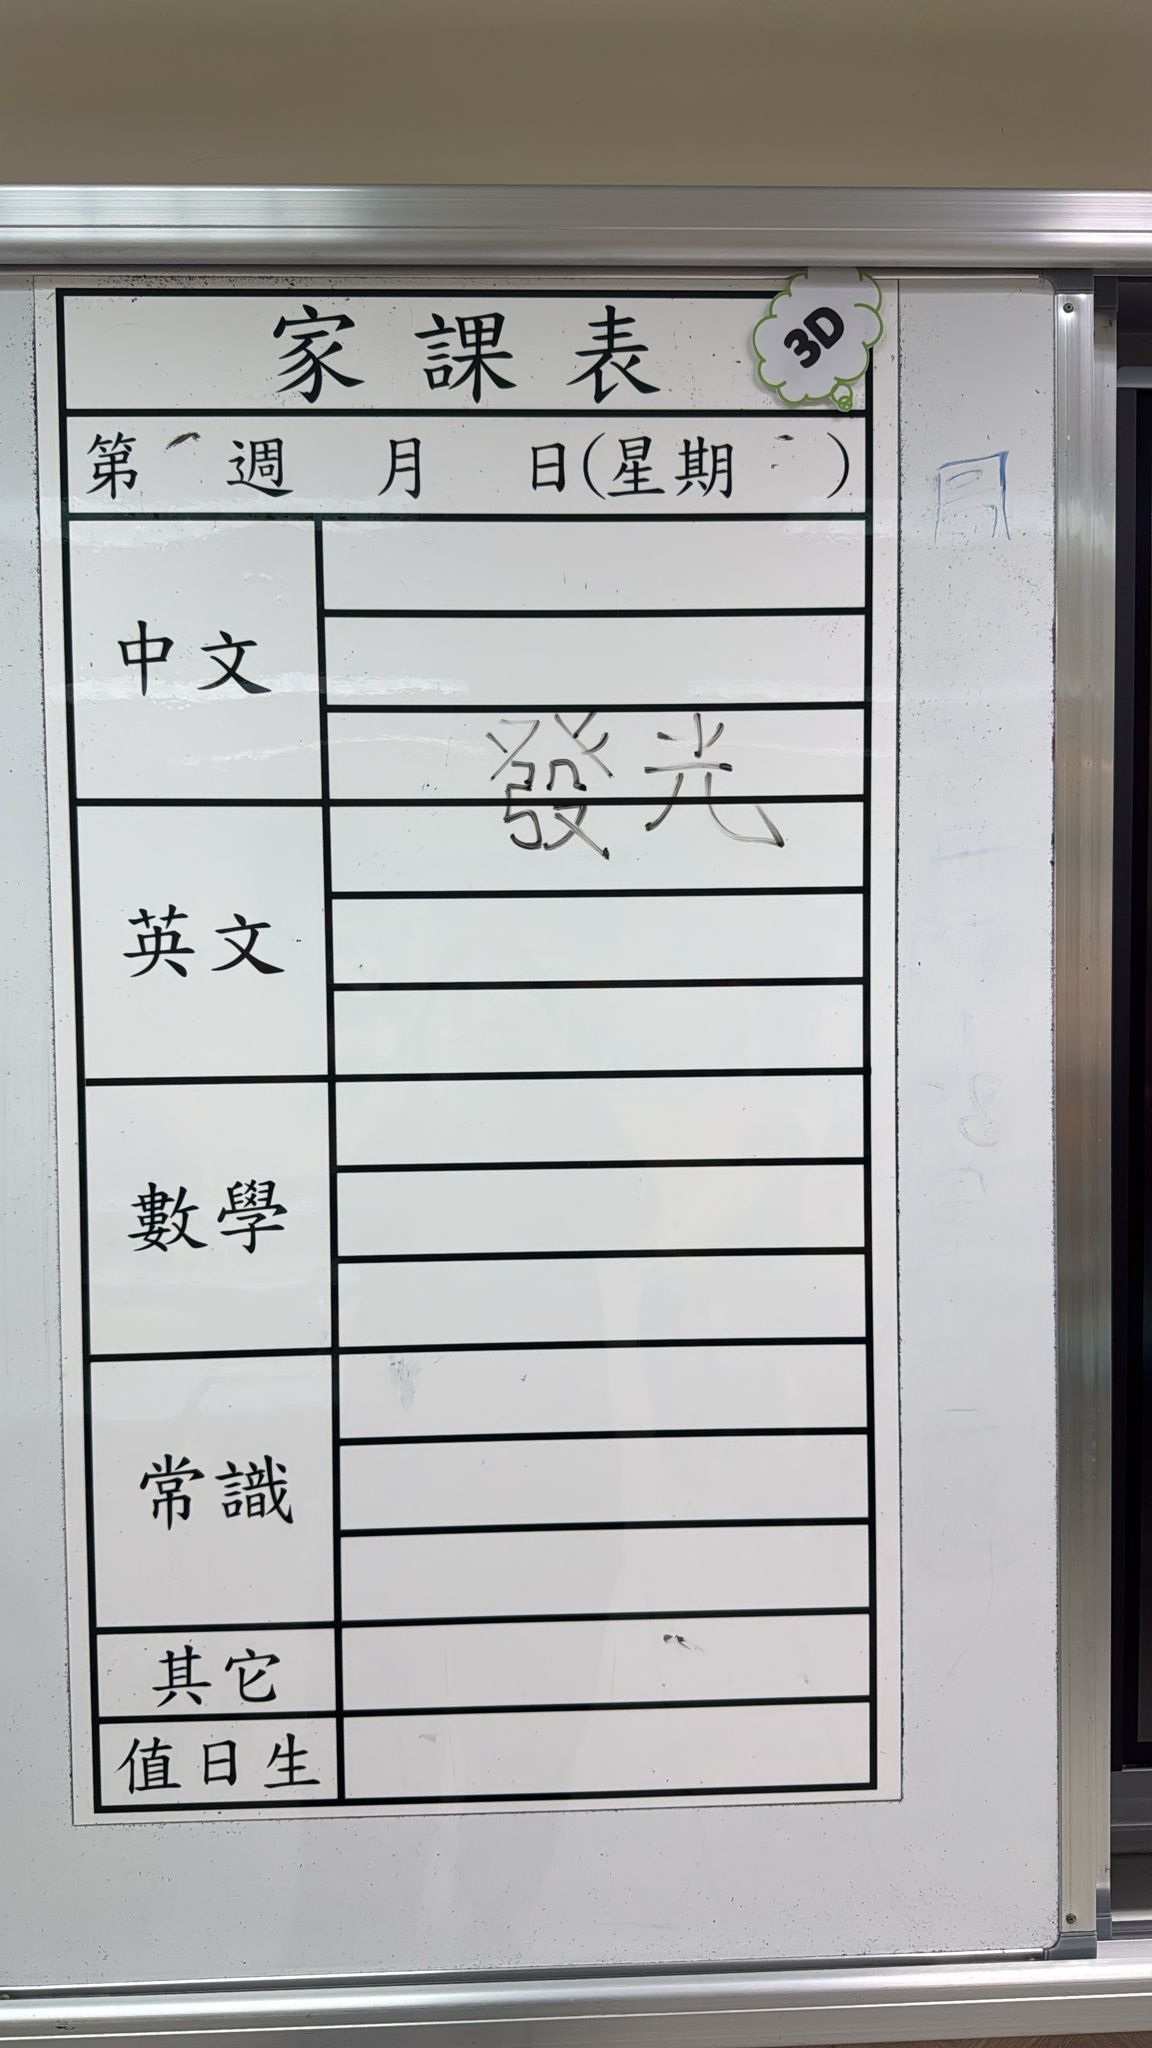 家課表
3D
第 週 月 日(星期 )
中文
發光
英文
數學
常識
其它
值日生